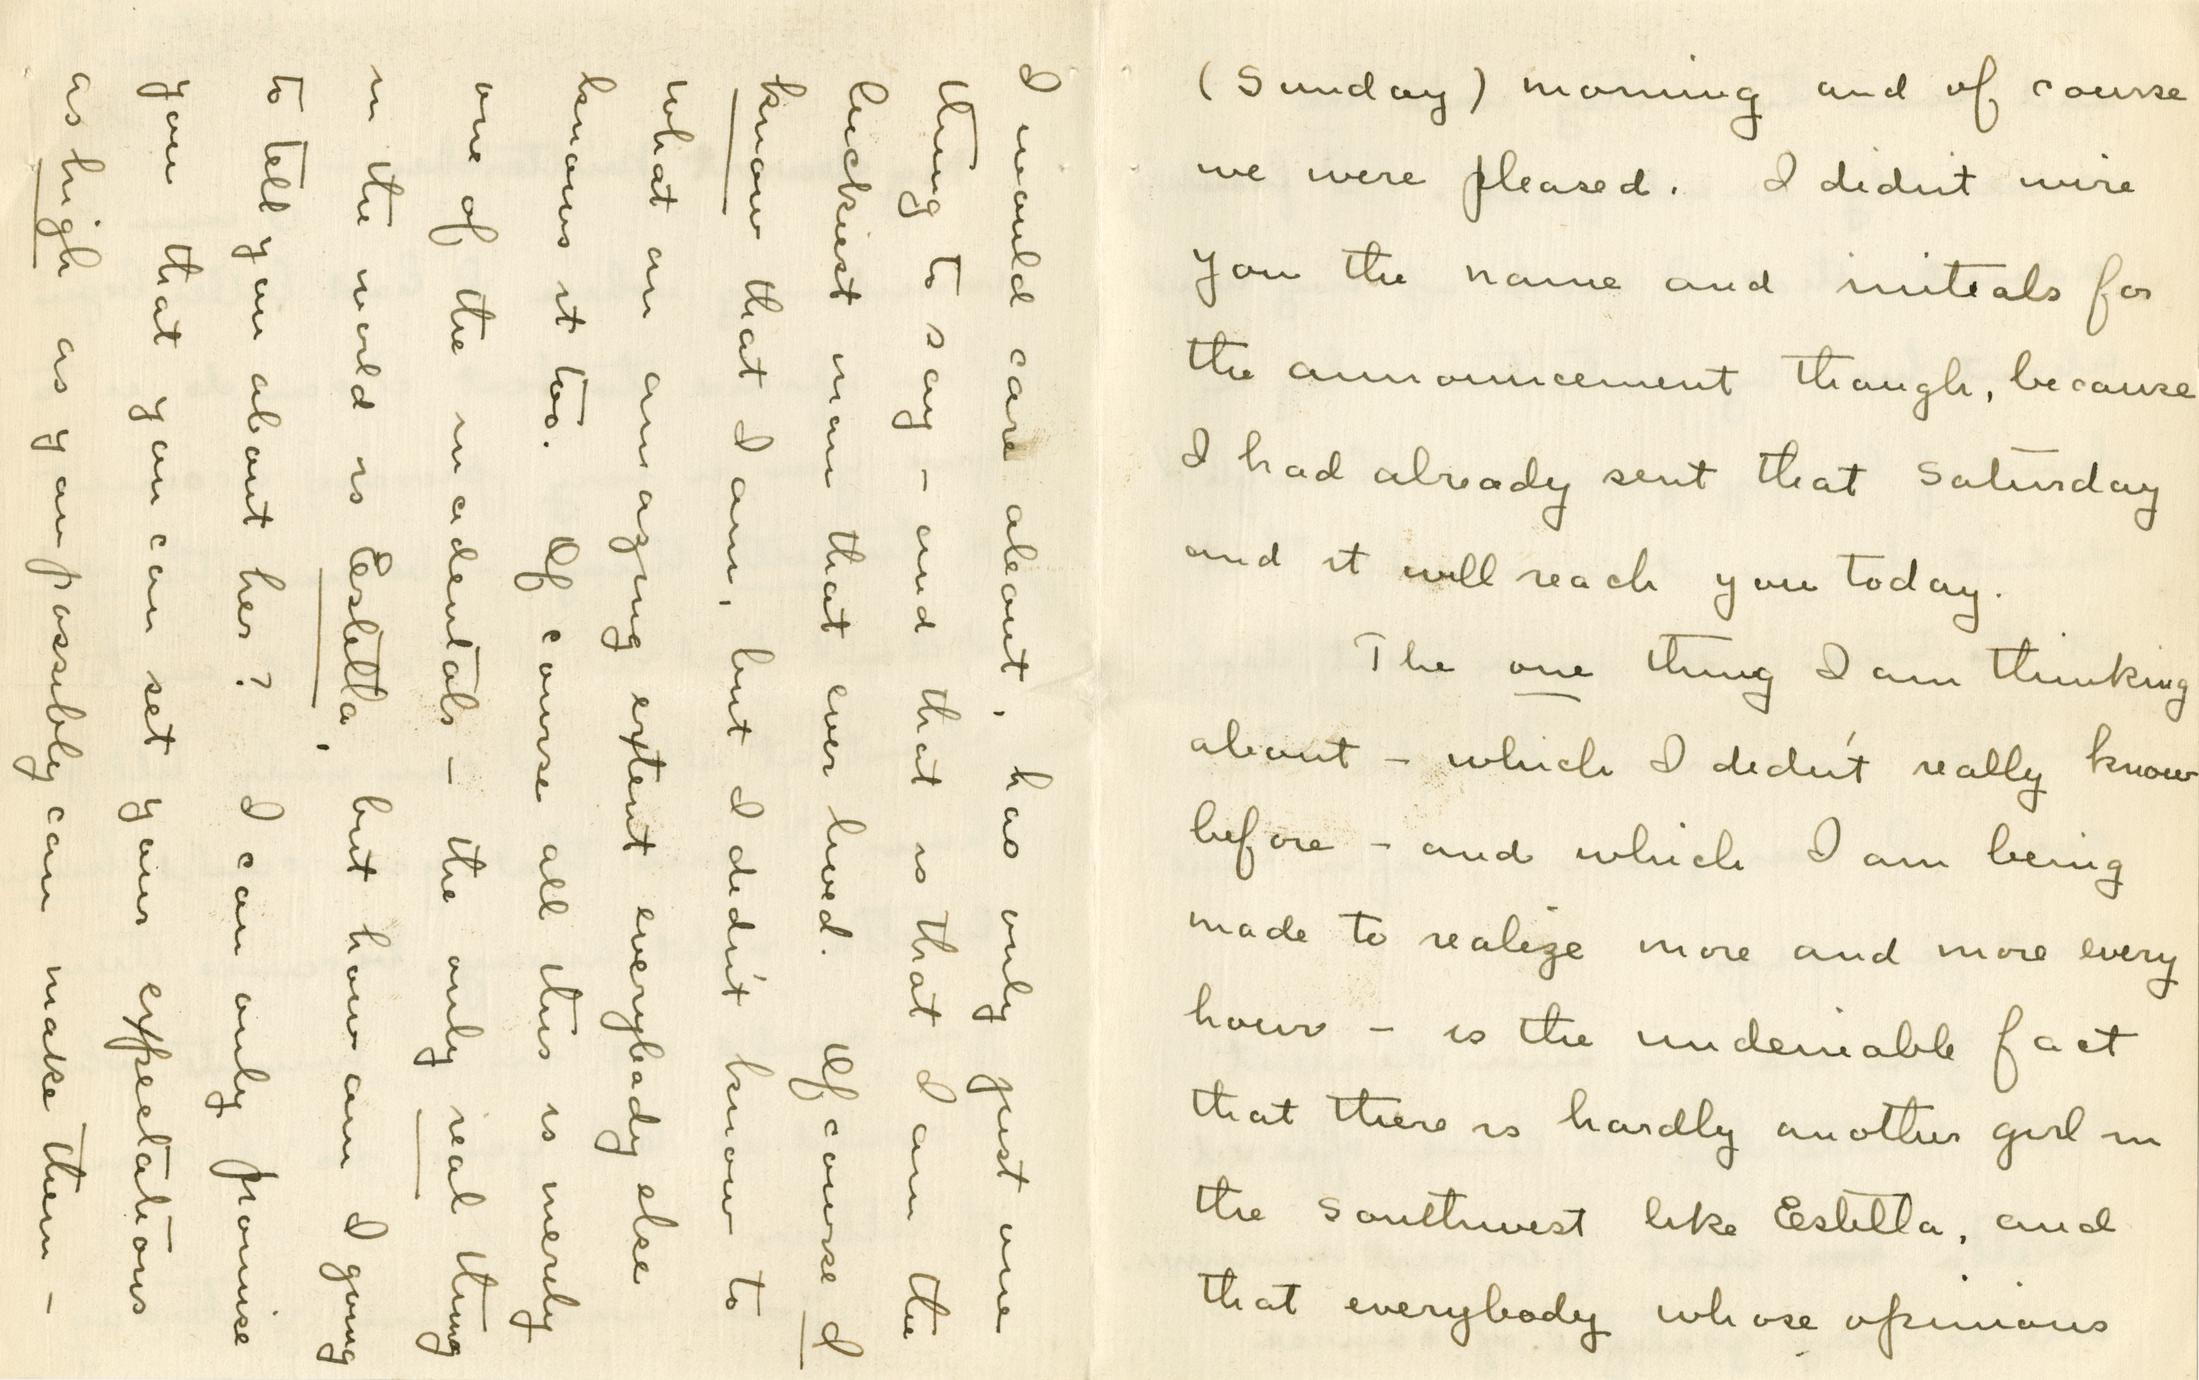 (Sunday) morning and of course
we were pleased. I didn't wire
you the name and initials for
the announcement though, because
I had already sent that Saturday
and it will reach you today.
The one thing I am thinking
about – which I didn't really know
before – and which I am being
made to realize more and more every
hour – is the undeniable fact
that there is hardly another girl in
the Southwest like Estella, and
that everybody whose opinions
I would care about, has only just one
thing to say – and that is that I am the
luckiest man that ever lived. Of course I
know that I am, but I didn't know to
what an amazing extent everybody else
knows it too. Of course all this is merely
one of the incidentals – the only real thing
in the world is Estella, but how am I going
to tell you about her? I can only promise
you that you can set your expectations
as high as you possibly can make them –